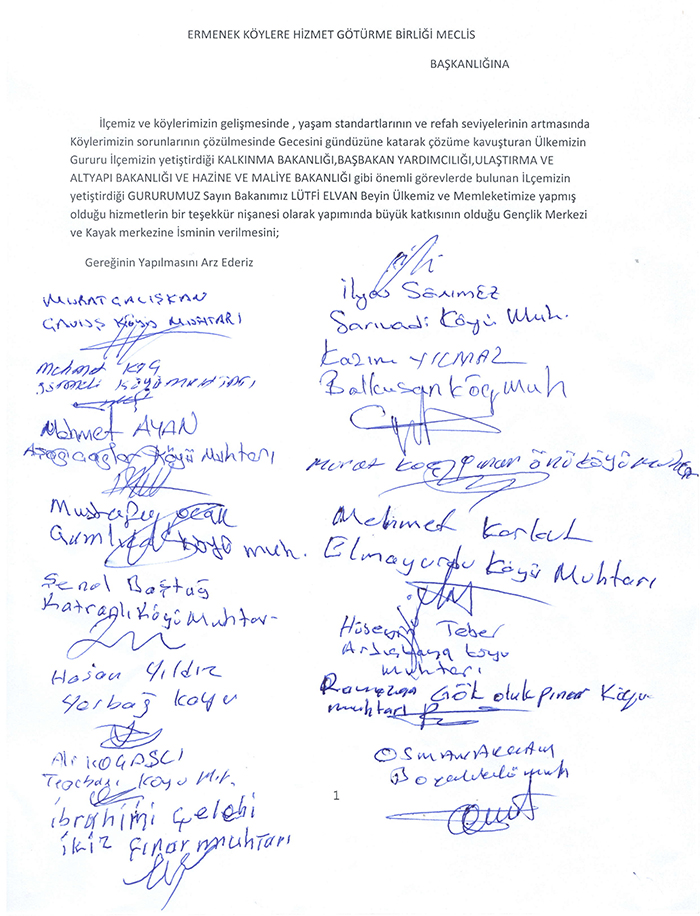 ERMENEK KÖYLERE HİZMET GÖTÜRME BİRLİĞİ MECLİS
BAŞKANLIĞINA
İlçemiz ve köylerimizin gelişmesinde , yaşam standartlarının ve refah seviyelerinin artmasında
Köylerimizin sorunlarının çözülmesinde Gecesini gündüzüne katarak çözüme kavuşturan Ülkemizin
Gururu İlçemizin yetiştirdiği KALKINMA BAKANLIĞI,BAŞBAKAN YARDIMCILIĞI,ULAŞTIRMA VE
ALTYAPI BAKANLIĞI VE HAZİNE VE MALİYE BAKANLIĞI gibi önemli görevlerde bulunan İLçemizin
yetiştirdiği GURURUMUZ Sayın Bakanımız LÜTFİ ELVAN Beyin Ülkemiz ve Memleketimize yapmış
olduğu hizmetlerin bir teşekkür nişanesi olarak yapımında büyük katkısının olduğu Gençlik Merkezi
ve Kayak merkezine İsminin verilmesi;
Gereğinin Yapılmasını Arz Ederiz
MURAT ÇALIŞKAN
KÖYÜ MUHTARI
Mehmet KOÇ
KÖYÜ MUHTARI
Mehmet AYAN
Köyü Muhtarı
Mustafa
köyü muh.
Şenol Baştuğ
Katranlı Köyü Muhtar
Hasan Yıldız
Yerbağ Köyü
Ali KOÇAŞCI
Tepebaşı Köyü
İbrahim Çelebi
İkiz Çınar muhtarı
İlyas SÖNMEZ
Sarıvadi Köyü Muh.
Kazım YILMAZ
Balkusan Köy Muh
Murat Koç Pınar önü köyü
Mehmet Korkut
Elmayurdu Köyü Muhtarı
Hüseyin Teber
Ardıçkaya köyü
muhtarı
Ramazan Gök olukpınar Köyü
muhtarı
OSMAN
1